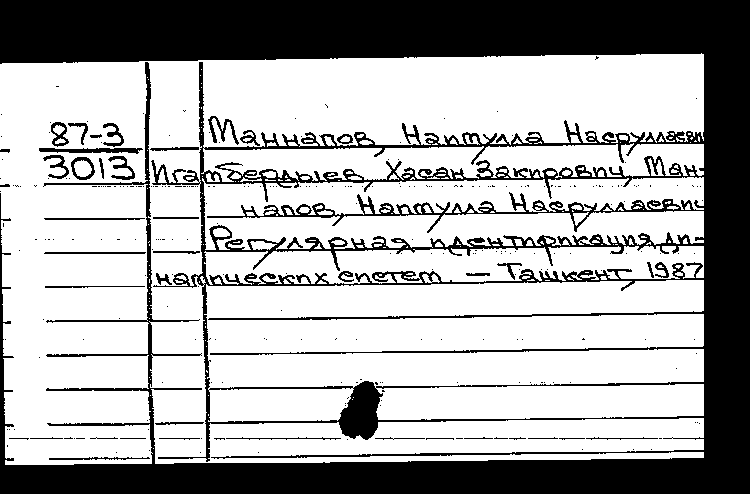 87-3
3013
Маннапов, Наптулла Насруллаеви
Игамбердыев, Хасан Закирович, Ман-
напов, Наптулла Насруллаевич
Регулярная идентификация ди-
намических систем. — Ташкент, 1987